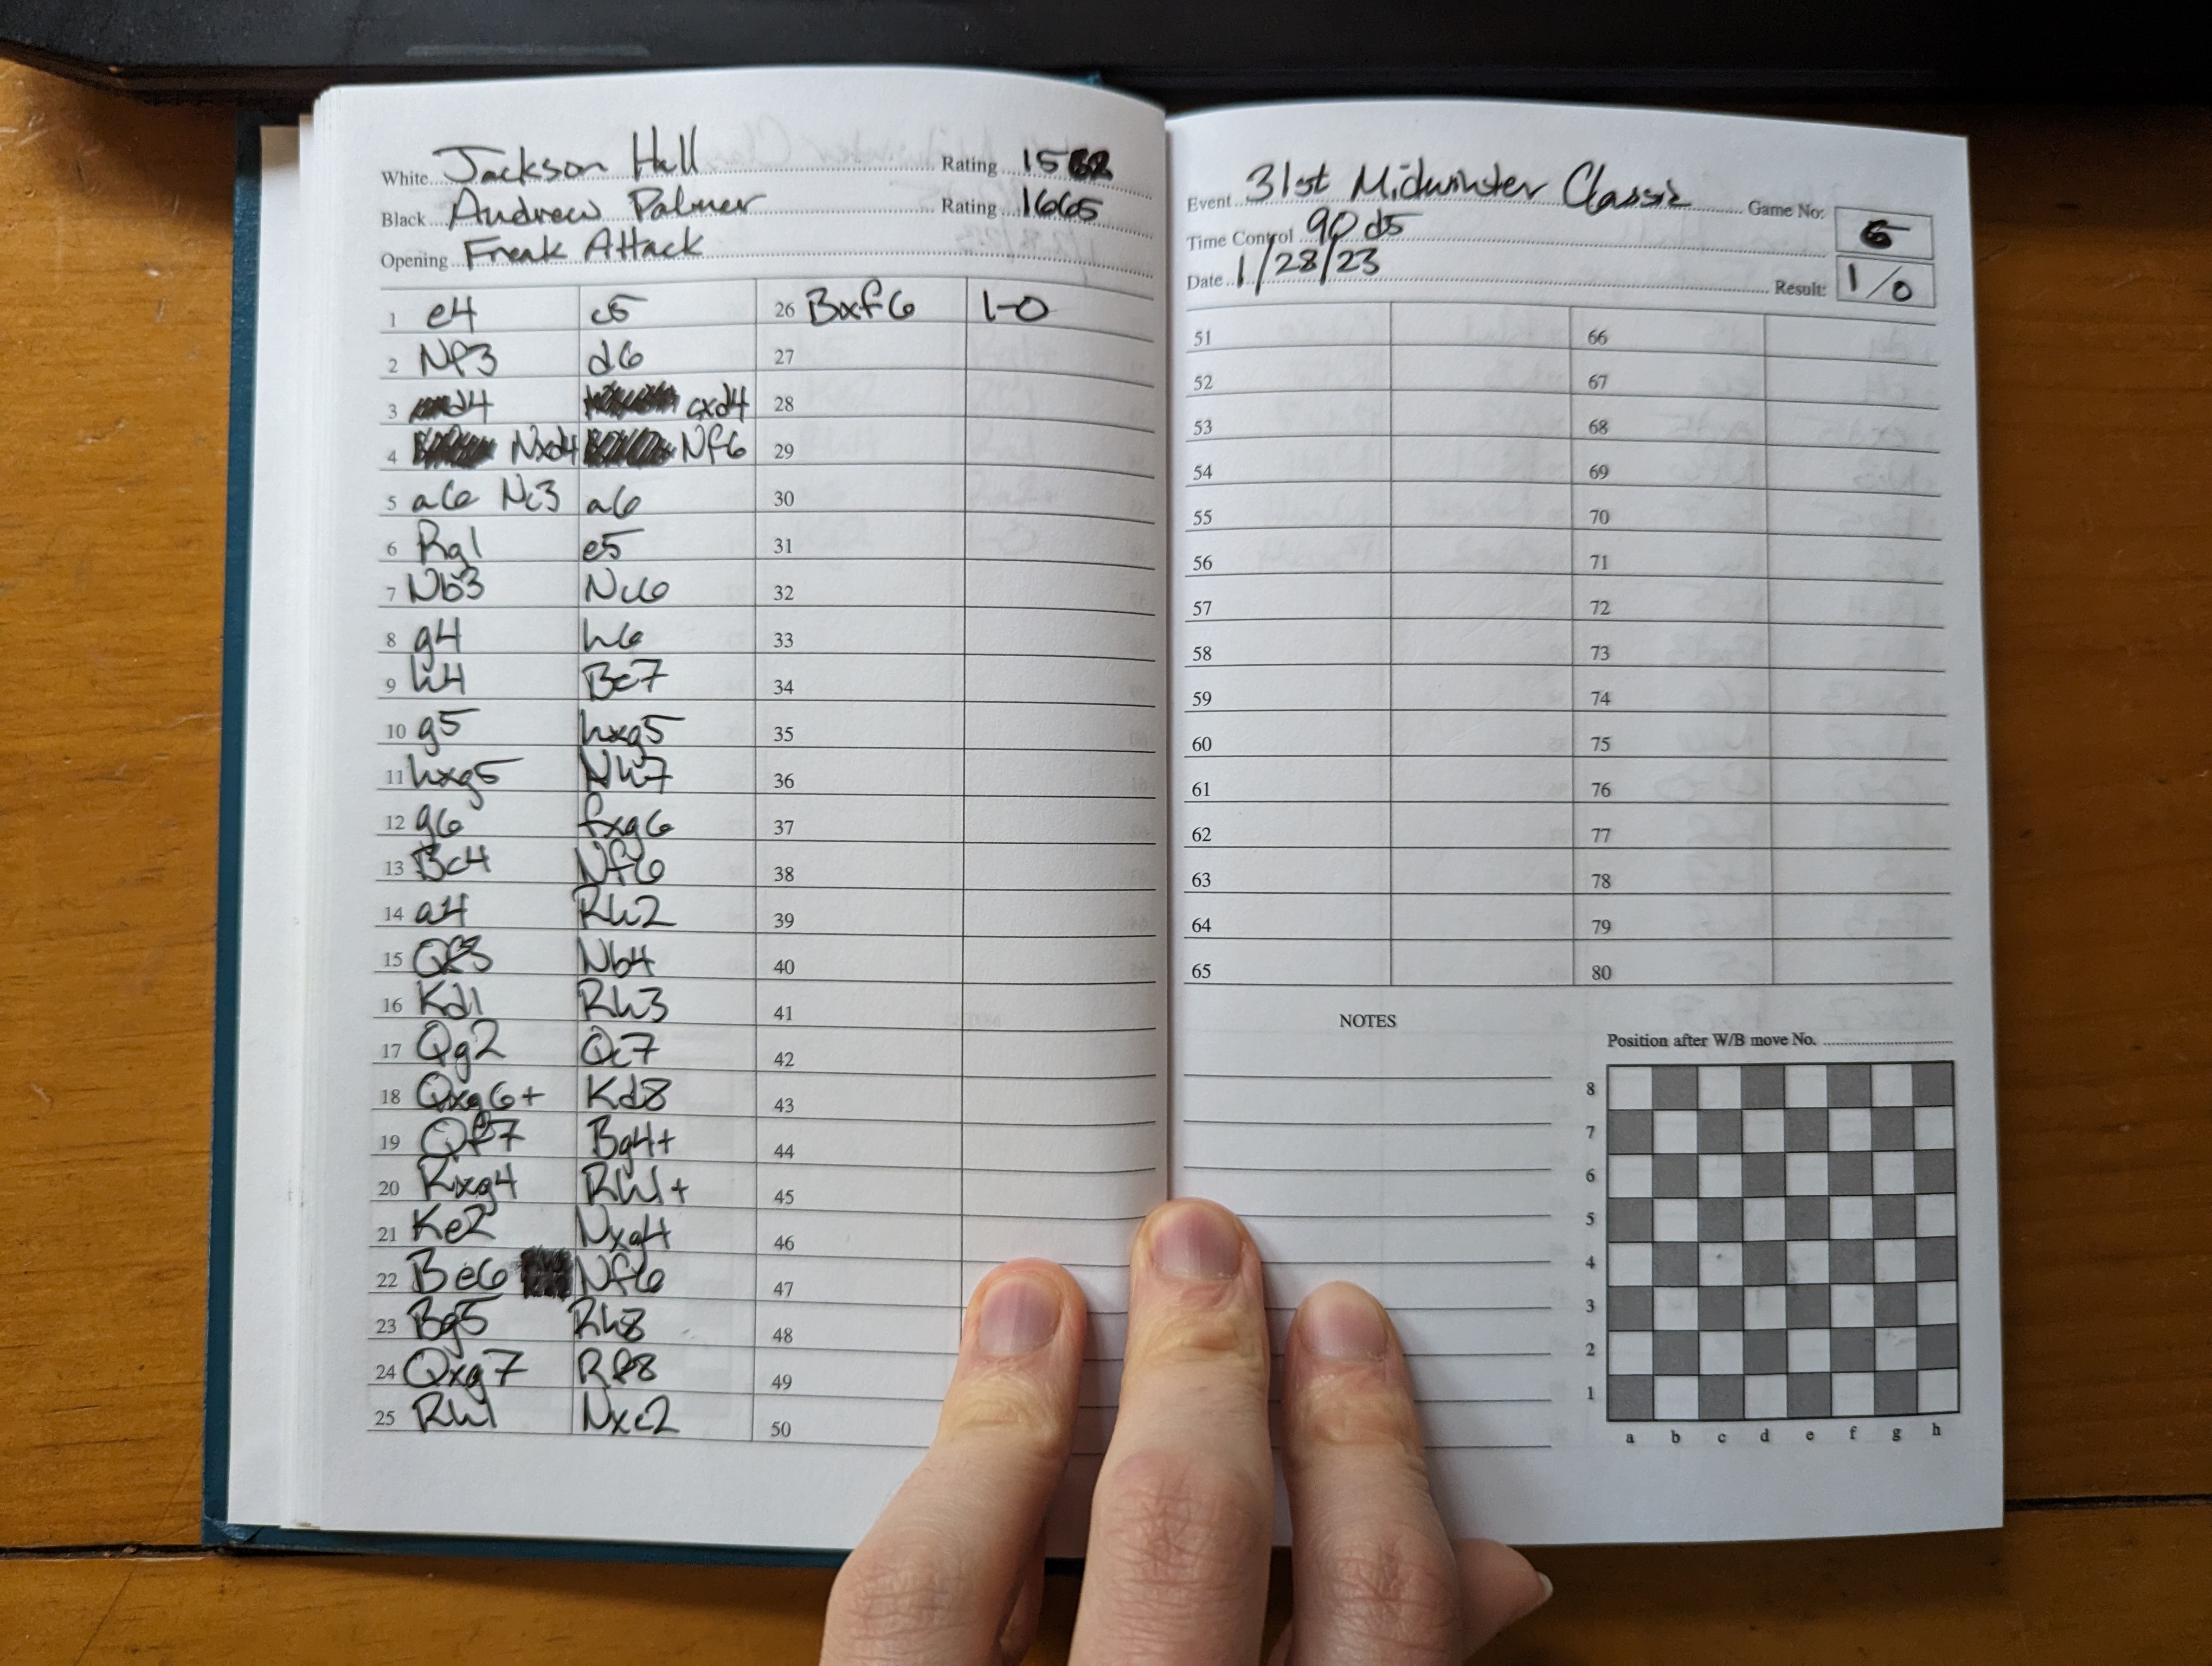 White Jackson Hall Rating 15
Black Andrew Palmer Rating 1665
Opening Freak Attack
1 e4 c5 26 Bxf6 1-0
2 Nf3 d6 27
3 d4 cxd4 28
4 Nxd4 Nf6 29
5 a6 Nc3 a6 30
6 Rg1 e5 31
7 Nb3 Nc6 32
8 g4 h6 33
9 h4 Be7 34
10 g5 hxg5 35
11 hxg5 Nh7 36
12 g6 fxg6 37
13 Bc4 Nf6 38
14 a4 Rh2 39
15 Qf3 Nb4 40
16 Kd1 Rh3 41
17 Qg2 Qc7 42
18 Qxg6+ Kd8 43
19 Qf7 Bg4+ 44
20 Rxg4 Rh1+ 45
21 Ke2 Nxg4 46
22 Be6 Nf6 47
23 Bg5 Rh8 48
24 Qxg7 Rf8 49
25 Rh1 Nxc2 50
Event 31st Midwinter Classic Game No: 5
Time Control 90 d5
Date 1/28/23 Result: 1/0
51 66
52 67
53 68
54 69
55 70
56 71
57 72
58 73
59 74
60 75
61 76
62 77
63 78
64 79
65 80
NOTES
Position after W/B move No.
8
7
6
5
4
3
2
1
a b c d e f g h